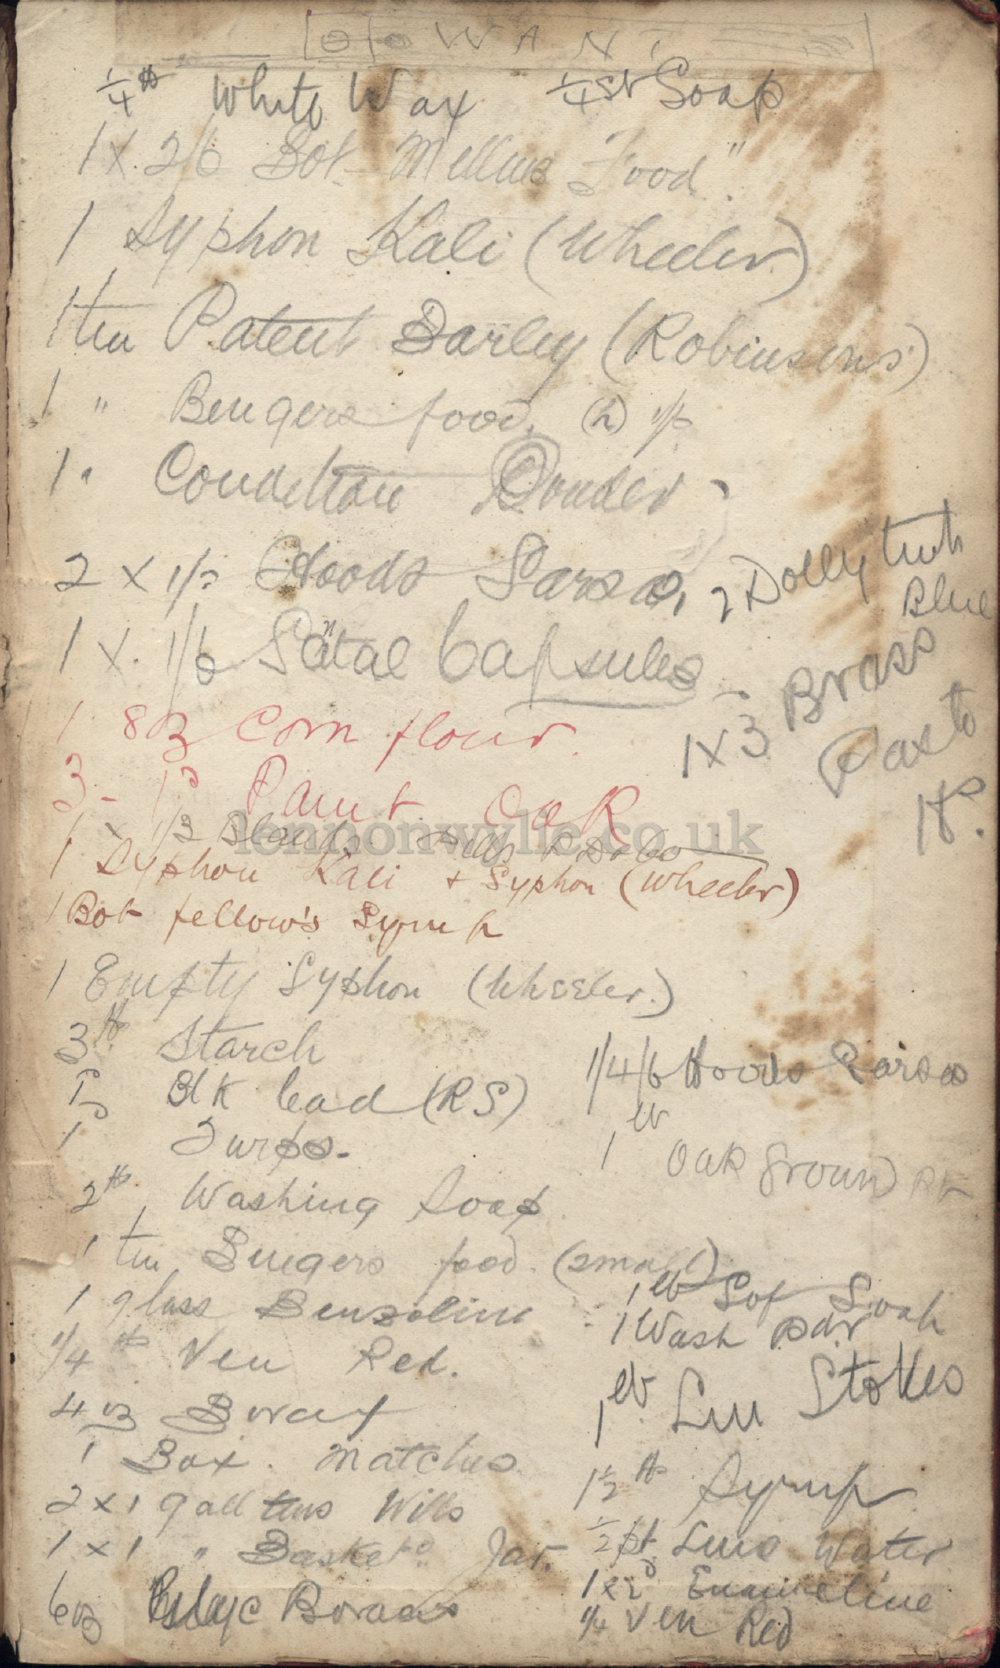 WANT
1/4 lb White Wax 1/4 st Soap
1 x 2/6 Bot Mellins Food"
1 Syphon Kali (Wheeler)
1 tin Patent Barley (Robinsons)
1 " Bengers food. 1/-
1 " Condition Powder
2 x 1/- Hoods Sarsa,
2 Dolly tub
Blue
1 x. 1/6 Santal Capsules
1 x 3 Brass
Paste
1d.
1 8oz Corn flour.
3 - 1d Paint OaK
lennonwylie.co.uk
1 Syphon Kali + Syphon (Wheeler)
1 Bot fellow's Syrup
1 Empty Syphon (Wheeler.)
3 lb Starch
1d Blk lead (RS)
1 Turps.
1/4/6 Hoods Sarsa
1 lb Oak Ground
2 lb. Washing Soap
1 tin Bengers food (small)
1 glass Benzoline
1 lb Sof Soap
1 Wash Bdr
1/4 lb Ven Red.
4 oz Borax
1 lb. Lin Stokes
1 Box. Matches
2 x 1 gall tins Wills
1 x 1 " Basket Jar.
6 oz Borax
1 1/2 lb Syrup
1/2 pt Lime Water
1 x 1d Enameline
1/4 Ven Red